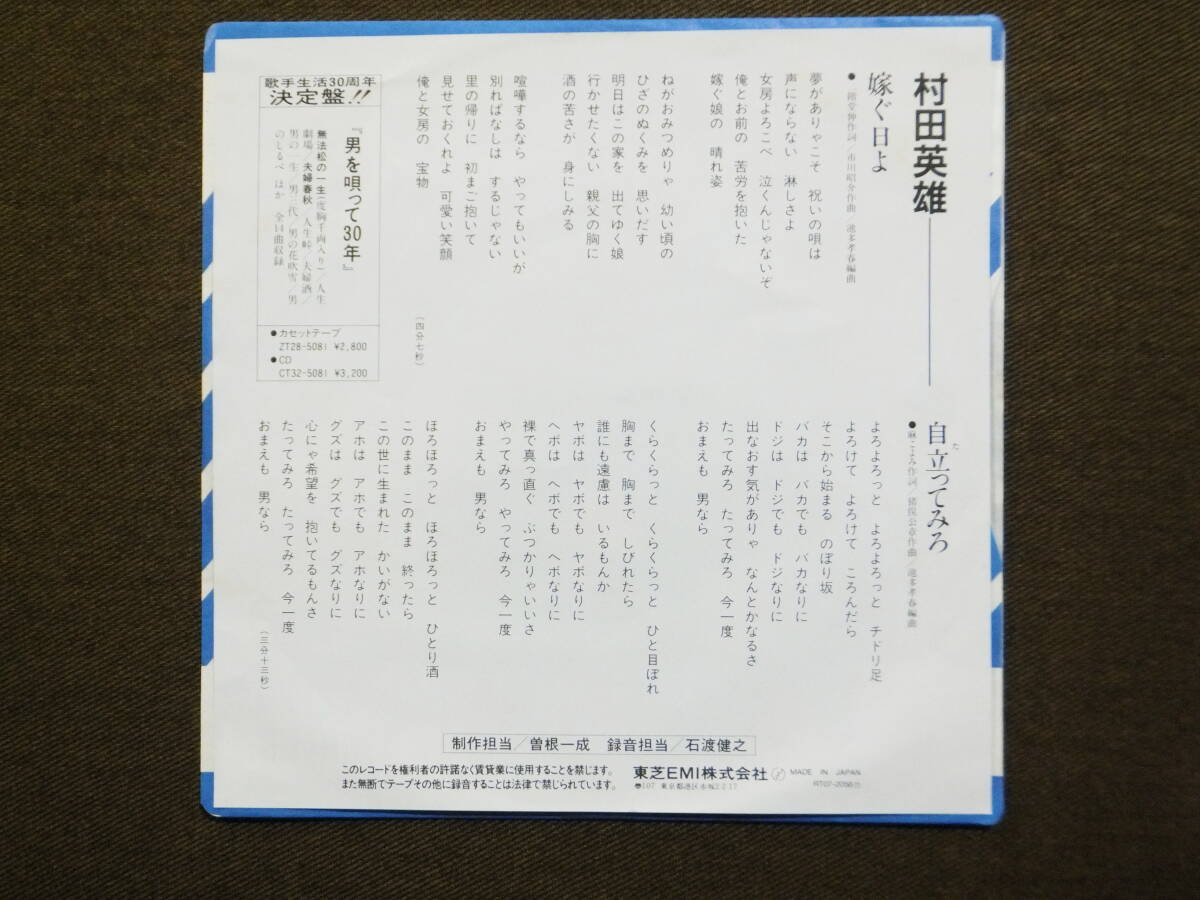 村田英雄
嫁ぐ日よ
市川昭介作曲／池多孝春編曲
夢がありゃこそ 祝いの唄は
声にならない 淋しさよ
女房よろこべ 泣くんじゃないぞ
俺とお前の 苦労を抱いた
嫁ぐ娘の 晴れ姿
ねがおみつめりゃ 幼い頃の
ひざのぬくみを 思いだす
明日はこの家を 出てゆく娘
行かせたくない 親父の胸に
酒の苦さが 身にしみる
喧嘩するなら やってもいいが
別ればなしは するじゃない
里の帰りに 初まご抱いて
見せておくれよ 可愛い笑顔
俺と女房の 宝物
(四分七秒)
歌手生活30周年
決定盤!!!
『男を唄って30年』
無法松の一生(度胸千両入り)／人生
劇場／夫婦春秋／人生峠／夫婦酒／
男の一生／男三代／男の花吹雪／男
のしるべ ほか 全14曲収録
●カセットテープ
ZT28-5081 ¥2,800
●CD
CT32-5081 ¥3,200
自立ってみろ
た
●麻こよみ作詞／猪俣公章作曲／池多孝春編曲
よろよろっと よろよろっと チドリ足
よろけて よろけて ころんだら
そこから始まる のぼり坂
バカは バカでも バカなりに
ドジは ドジでも ドジなりに
出なおす気がありゃ なんとかなるさ
たってみろ たってみろ 今一度
おまえも 男なら
くらくらっと くらくらっと ひと目ぼれ
胸まで 胸まで しびれたら
誰にも遠慮は いるもんか
ヤボは ヤボでも ヤボなりに
ヘボは ヘボでも ヘボなりに
裸で真っ直ぐ ぶつかりゃいいさ
やってみろ やってみろ 今一度
おまえも 男なら
ほろほろっと ほろほろっと ひとり酒
このまま このまま 終ったら
この世に生まれた かいがない
アホは アホでも アホなりに
グズは グズでも グズなりに
心にゃ希望を 抱いてるもんさ
たってみろ たってみろ 今一度
おまえも 男なら
(三分十三秒)
制作担当／曽根一成 録音担当／石渡健之
このレコードを権利者の許諾なく賃貸業に使用することを禁じます。
また無断でテープその他に録音することは法律で禁じられています。
東芝EMI株式会社 MADE IN JAPAN
〒107 東京都港区赤坂2-2-17 RT07-2056